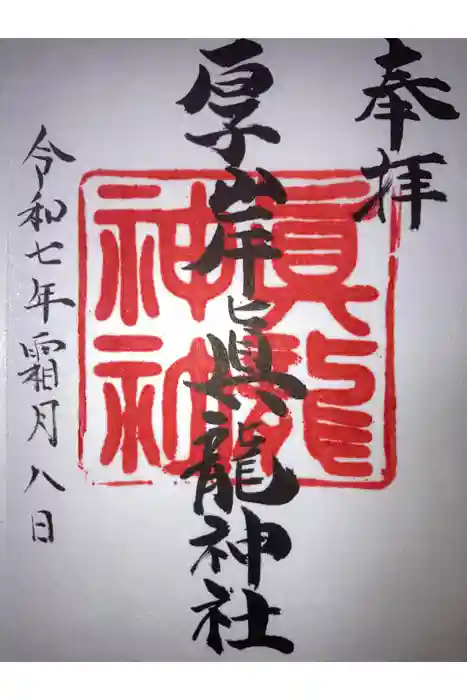 奉拝
厚岸眞龍神社
眞龍
神社
令和七年霜月八日